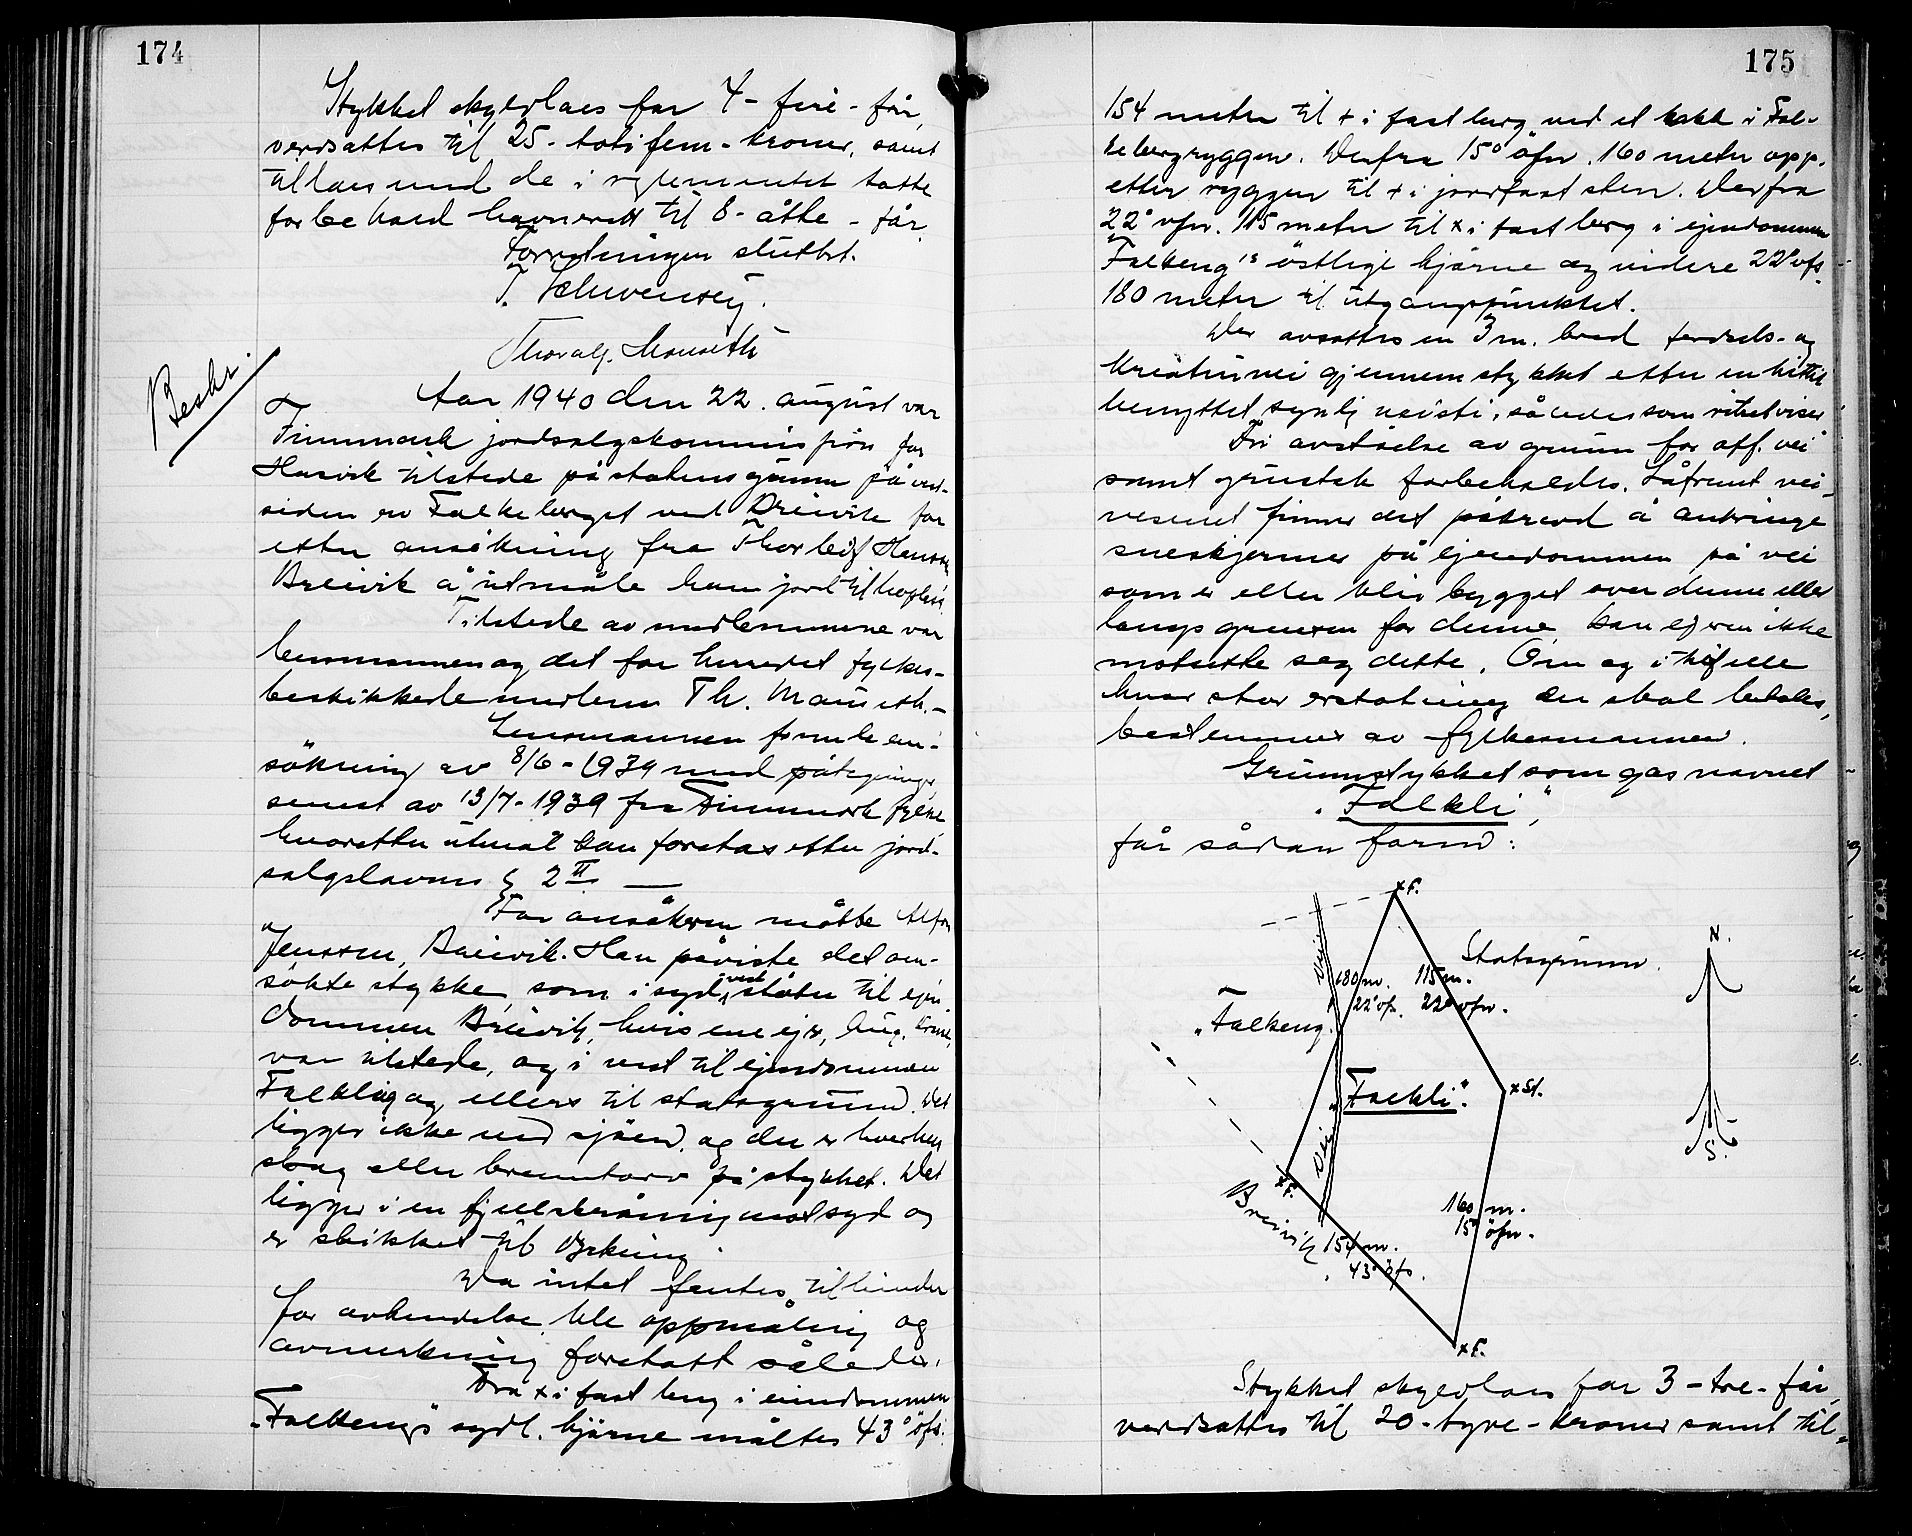 174
Stykket skyldlaes for 4 - fire - før,
verdsattes til 25 - totifem - kroner, samt
tillaes med de i reglementet tatte
forbehold havnerett til 8 - åtte - får.
Forretningen sluttet.
Thoralf. Mauseth
Beskr.
Aar 1940 den 22. august var
Finnmark jordsalgskommisjon for
Hasvik tilstede på statens grunn på vest-
siden av Falkeberget ved Breivik for
etter ansøkning fra Thorleif Hansen
Breivik å utmåle ham jord til
Tilstede av medlemmene var
lensmannen og det for herredet fylkes-
beskikkede medlem Th. Mauseth. -
Lensmannen fremla an-
søkning av 8/6 - 1939 med påtegninger
senest av 13/7 - 1939 fra Finnmark fylke
hvoretter utmål kan foretas etter jord-
salgslovens § 2 II. —
For ansøkeren møtte Alfon
Jenssen, Breivik. Han påviste det om-
søkte stykke, som i syd vest støter til ejen
dommen Breivik, hvis ene ejer, Aug.
var tilstede, og i vest til ejendommen
og ellers til statsgrund. Det
ligger ikke ved sjøen, og der er hverken
skog eller brenntorv på stykket. Det
ligger i en fjellskråning mot syd og
er skikket til dyrkning.
Da intet fantes til hinder
for avhendelse, ble oppmåling og
avmerkning foretatt således:
Fra x i fast berg i eiendommen
"Falkeng"s sydl. hjørne måltes 43° øfs.
175
154 meter til + i fast berg ved et hakk i Fal-
kebergryggen. Derfra 15° øfn. 160 meter opp-
etter ryggen til + i jordfast sten. Derfra
22° vfn. 115 meter til x i fast berg i ejendommen
"Falkeng"s østlige hjørne og videre 22° vfs.
180 meter til utgangspunktet.
Der avsattes en 3 m. bred ferdsels- og
kreaturvei gjennem stykket etter en hittil
benyttet synlig veisti, således som risset viser
Fri avståelse av grunn for off. vei
samt grustak forbeholdes. Såfremt vei-
vesenet finner det påkrevd å anbringe
sneskjermer på ejendommen på vei
som er eller blir bygget over denne eller
langs grensen for denne, kan ejeren ikke
motsette seg dette. Om og i tilfelle
hvor stor erstatning der skal betales,
bestemmes av fylkesmannen.
Grunnstykket som gas navnet
"Falkli",
får sådan form:
xF.
N.
Statsgrunn.
Vei
180 m.
22° vfs.
115 m.
22° vfn.
"Falkeng".
"Falkli".
xSt.
Vei
S.
xF.
Breivik.
160 m.
15° øfn.
154 m.
43° øfs.
xF.
Stykket skyldlaes for 3 - tre - før,
verdsattes til 20 - tyve - kroner samt til-